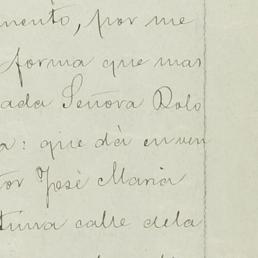 mento, por me
forma que mas
ada Señora Dolo
a: que dá en ven
tor José Maria
tima calle dela